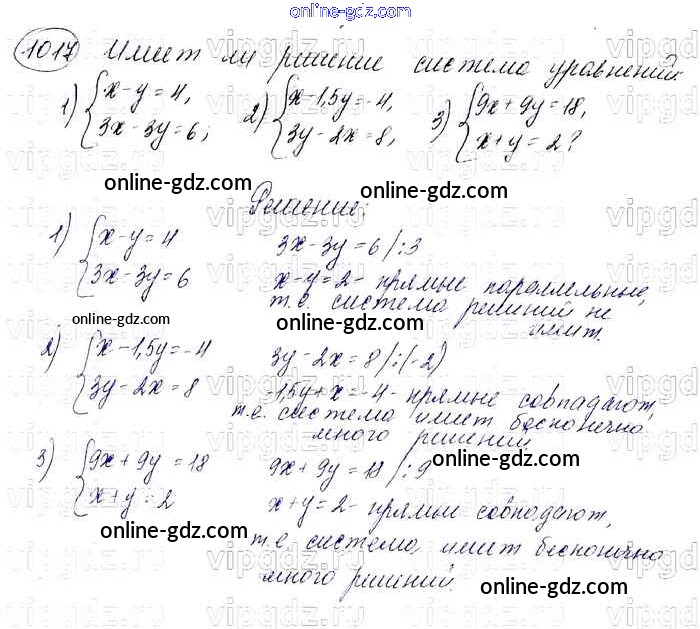 online-gdz.com
1017 Имеет ли решение система уравнений:
1) { x - y = 4, 3x - 3y = 6; 2) { x - 1,5y = -4, 3y - 2x = 8, 3) { 9x + 9y = 18, x + y = 2?
online-gdz.com online-gdz.com
Решение:
1) { x - y = 4 3x - 3y = 6 /:3
3x - 3y = 6 x - y = 2 - прямые параллельные,
т.е. система решений не
имеет.
online-gdz.com online-gdz.com
2) { x - 1,5y = -4 3y - 2x = 8 /:(-2)
3y - 2x = 8 -1,5y + x = -4 - прямые совпадают,
т.е. система имеет бесконечно
много решений.
online-gdz.com online-gdz.com
3) { 9x + 9y = 18 9x + 9y = 18 /:9
x + y = 2 x + y = 2 - прямые совпадают,
online-gdz.com
т.е. система, имеет бесконечно
много решений.
online-gdz.com online-gdz.com